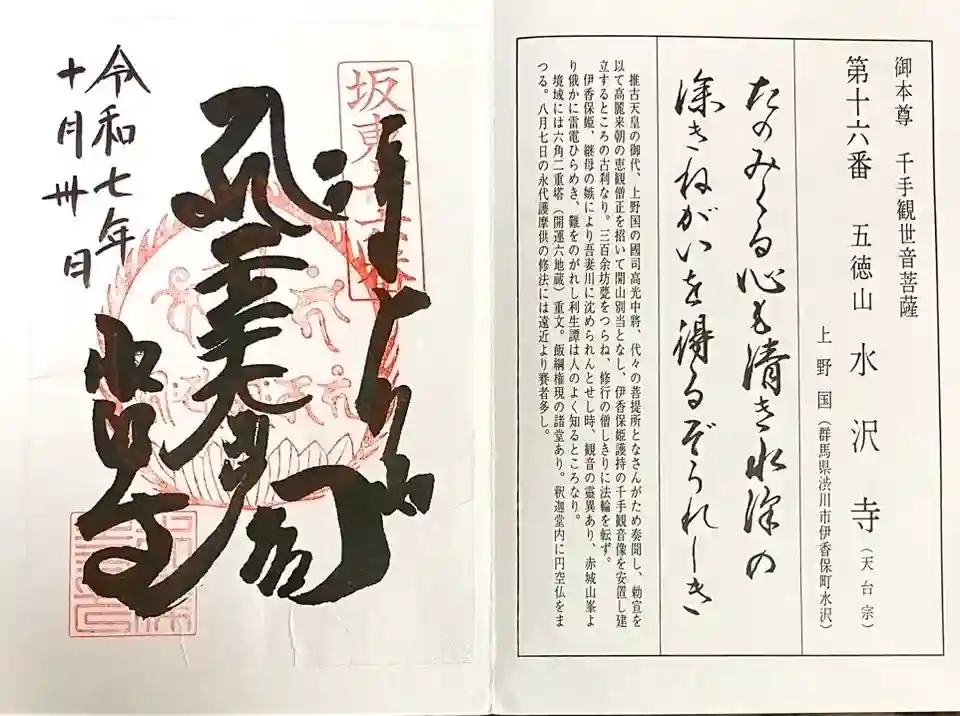 御本尊　千手観世音菩薩
第十六番　五徳山　水沢寺（天台宗）
上野国（群馬県渋川市伊香保町水沢）
たのみくる心も清き水沢の
深きねがいを得るぞうれしき
推古天皇の御代、上野国の國司高光中將、代々の菩提所となさんがため奏聞し、勅宣を
以て高麗来朝の恵観僧正を招いて開山別当となし、伊香保姫護持の千手観音像を安置し建
立するところの古刹なり。三百余坊甍をつらね、修行の僧しきりに法輪を転ず。
伊香保姫、継母の嫉により吾妻川に沈められんとせし時、観音の靈異あり、赤城山峯よ
り俄かに雷電ひらめき、難をのがれし利生譚は人のよく知るところなり。
境域には六角二重塔（開運六地蔵）重文。飯綱権現の諸堂あり。釈迦堂内に円空仏をま
つる。八月七日の永代護摩供の修法には遠近より賽者多し。
坂東十六番
令和七年
十月卅日